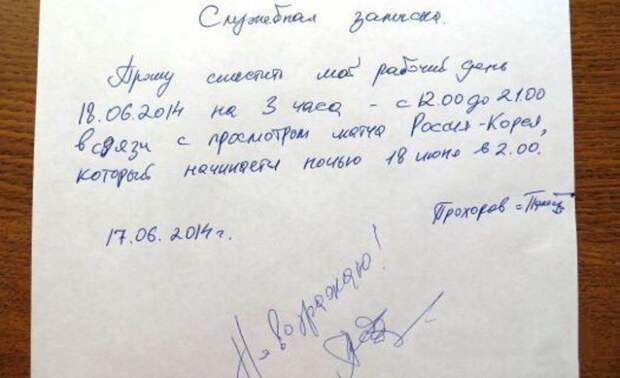 Служебная записка.
Прошу сместить мой рабочий день
18.06.2014 на 3 часа - с 12.00 до 21.00
в связи с просмотром матча Россия-Корея,
который начинается ночью 18 июня в 2.00.
Прохоров
17.06.2014г.
Не возражаю!